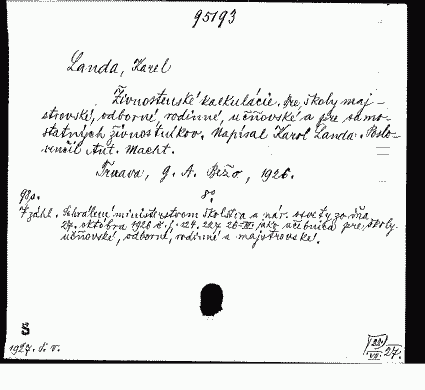 95193
Landa, Karel
Živnostenské kalkulácie. Pre školy maj-
strovské, odborné, rodinné, učňovské a pre samo-
statných živnostníkov. Napísal Karol Landa. Poslo-
venčil Ant. Macht.
Trnava, G. A. Bežo, 1926.
98 p. 8°
Schválené ministerstvom školstva a nár. osvety zo dňa
27. októbra 1926 č. j. 124.227 26-III jako učebnica pre školy
učňovské, odborné, rodinné a majstrovské.
S
1927
27.